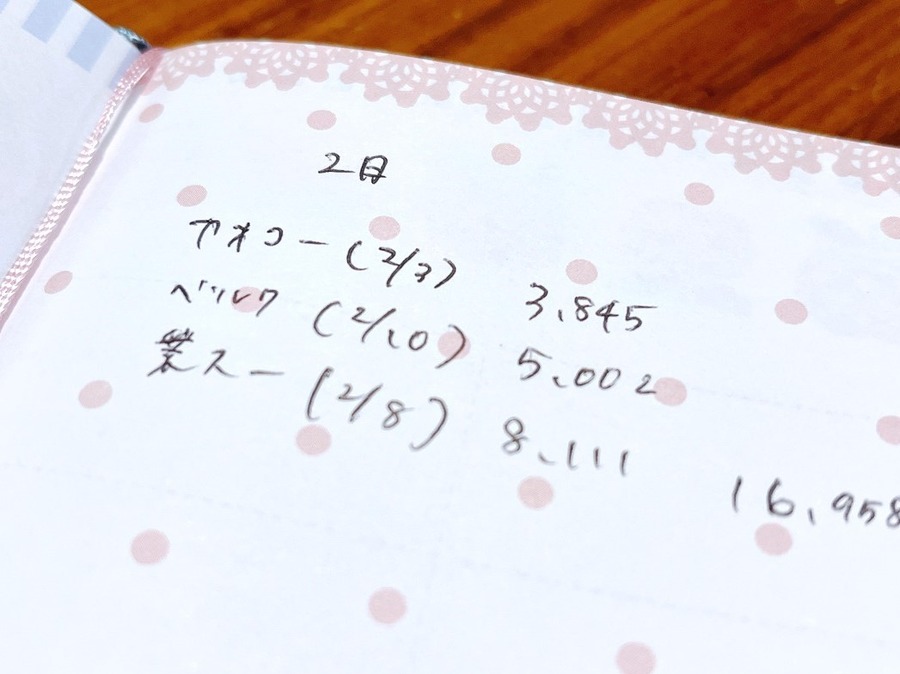 2月
ヤオコー(2/3) 3,845
ベルク(2/10) 5,002
業スー(2/8) 8,111
16,958